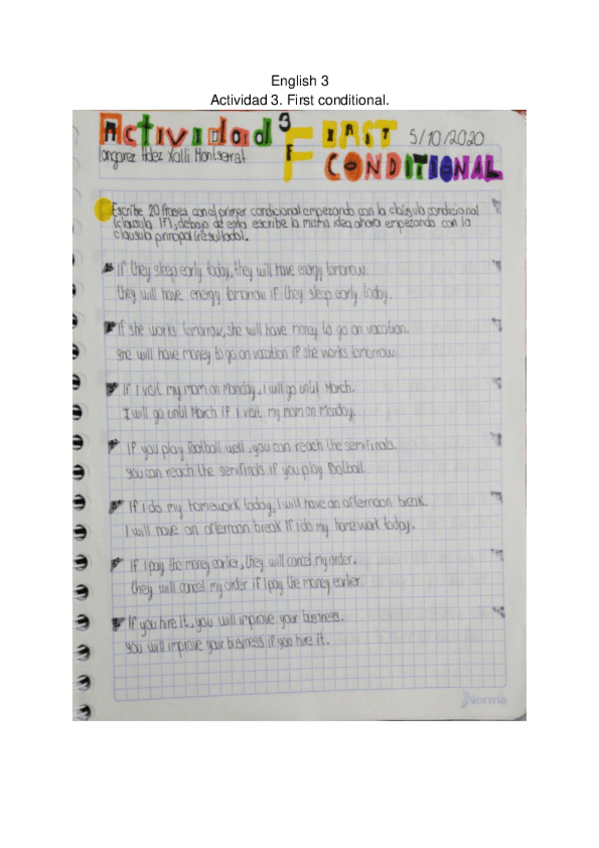 English 3
Actividad 3. First conditional.
Actividad 3 FIRST 5/10/2020
Xalli Montserrat CONDITIONAL
Escribe 20 frases con el primer condicional empezando con la cláusula condicional
(cláusula IF), debajo de esta escribe la misma idea ahora empezando con la
cláusula principal (resultado).
If they sleep early today, they will have energy tomorrow.
they will have energy tomorrow if they sleep early today.
If she works tomorrow, she will have money to go on vacation.
She will have money to go on vacation if she works tomorrow.
If I visit my mom on Monday, I will go until March.
I will go until March if I visit my mom on Monday.
If you play football well, you can reach the semifinals.
you can reach the semifinals if you play football.
If I do my homework today, I will have an afternoon break.
I will have an afternoon break if I do my homework today.
If I pay the money earlier, they will cancel my order.
they will cancel my order if I pay the money earlier.
If you hire it, you will improve your business.
you will improve your business if you hire it.
Norma